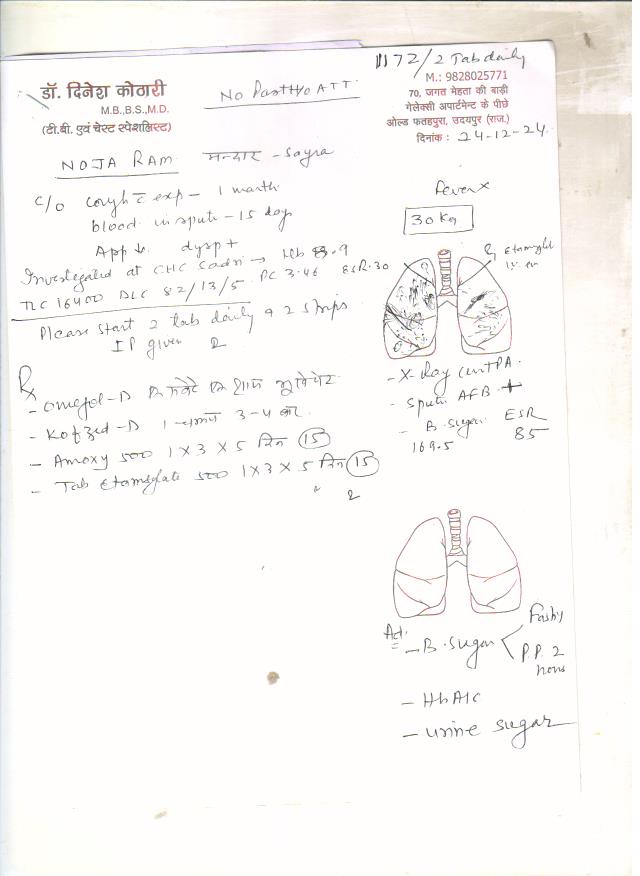 1172/2 Tab daily
डॉ. दिनेश कोठारी
M.B.,B.S.,M.D.
(टी.बी. एवं चेस्ट स्पेशलिस्ट)
No Past H/o ATT.
M.: 9828025771
70, जगत मेहता की बाड़ी
गेलेक्सी अपार्टमेन्ट के पीछे
ओल्ड फतहपुरा, उदयपुर (राज.)
दिनांक: 24-12-24
NOJA RAM मन्दार - Sayra
C/o Cough c exp - 1 month
blood in sputu - 15 days
App ↓ dysp +
Fever x
30 Kg
Investigated at CHC Sadri → Hb 8.9
TLC 16400 DLC 82/13/5 PC 3.46 ESR-30
Please start 2 tab daily 2 strips
IP given 2
Rx
- Omefol-D
- Kofzed-D 3-4 बार
- Amoxy 500 1X3X5 दिन 15
- Tab Etamsylate 500 1X3X5 दिन 15
2
- X-Ray chest PA
- Sputu AFB +
- B. Sugar
169.5
ESR
85
Adv:
- B. Sugar
P.P. 2
hours
- HbA1C
- urine sugar